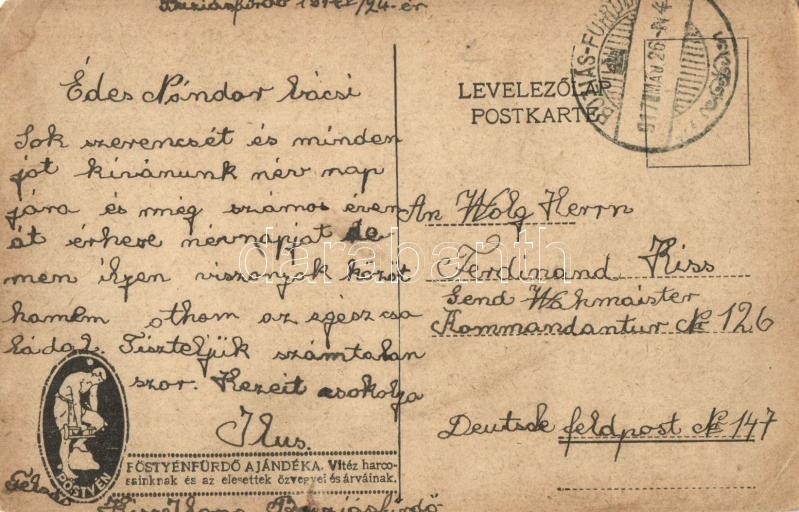 Buziásfürdő 1917 V/24-én
Édes Nándor bácsi
Sok szerencsét és minden
jót kívánunk név nap
jára és még számos éven
át érhese névnapját de
nem ilyen viszonyok között
hamem othon az egész csa
láda2. Tiszteljük számtalan
szor. Kezeit csokolja
Ilus.
PÖSTYÉN
PÖSTYÉNFÜRDŐ AJÁNDÉKA. Vitéz harco-
sainknak és az elesettek özvegyei és árváinak.
Kiss Ilona Buziásfürdő
LEVELEZŐLAP
POSTKARTE
BUZIÁS-FÜRDŐ
917 MÁJ 26
An Wolg Herrn
Ferdinand Kiss
Gend Wahmaister
Kommandantur № 126
Deutsche feldpost № 147
darabanth